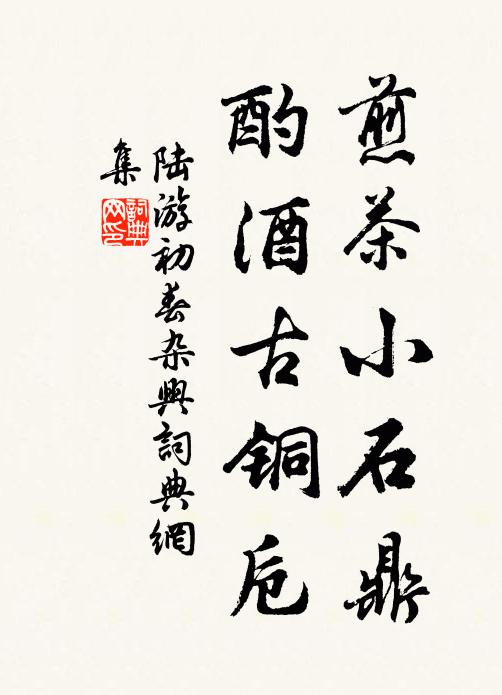 煎茶小石鼎
酌酒古铜卮
陆游初春杂興詞典網
集
詞典网印